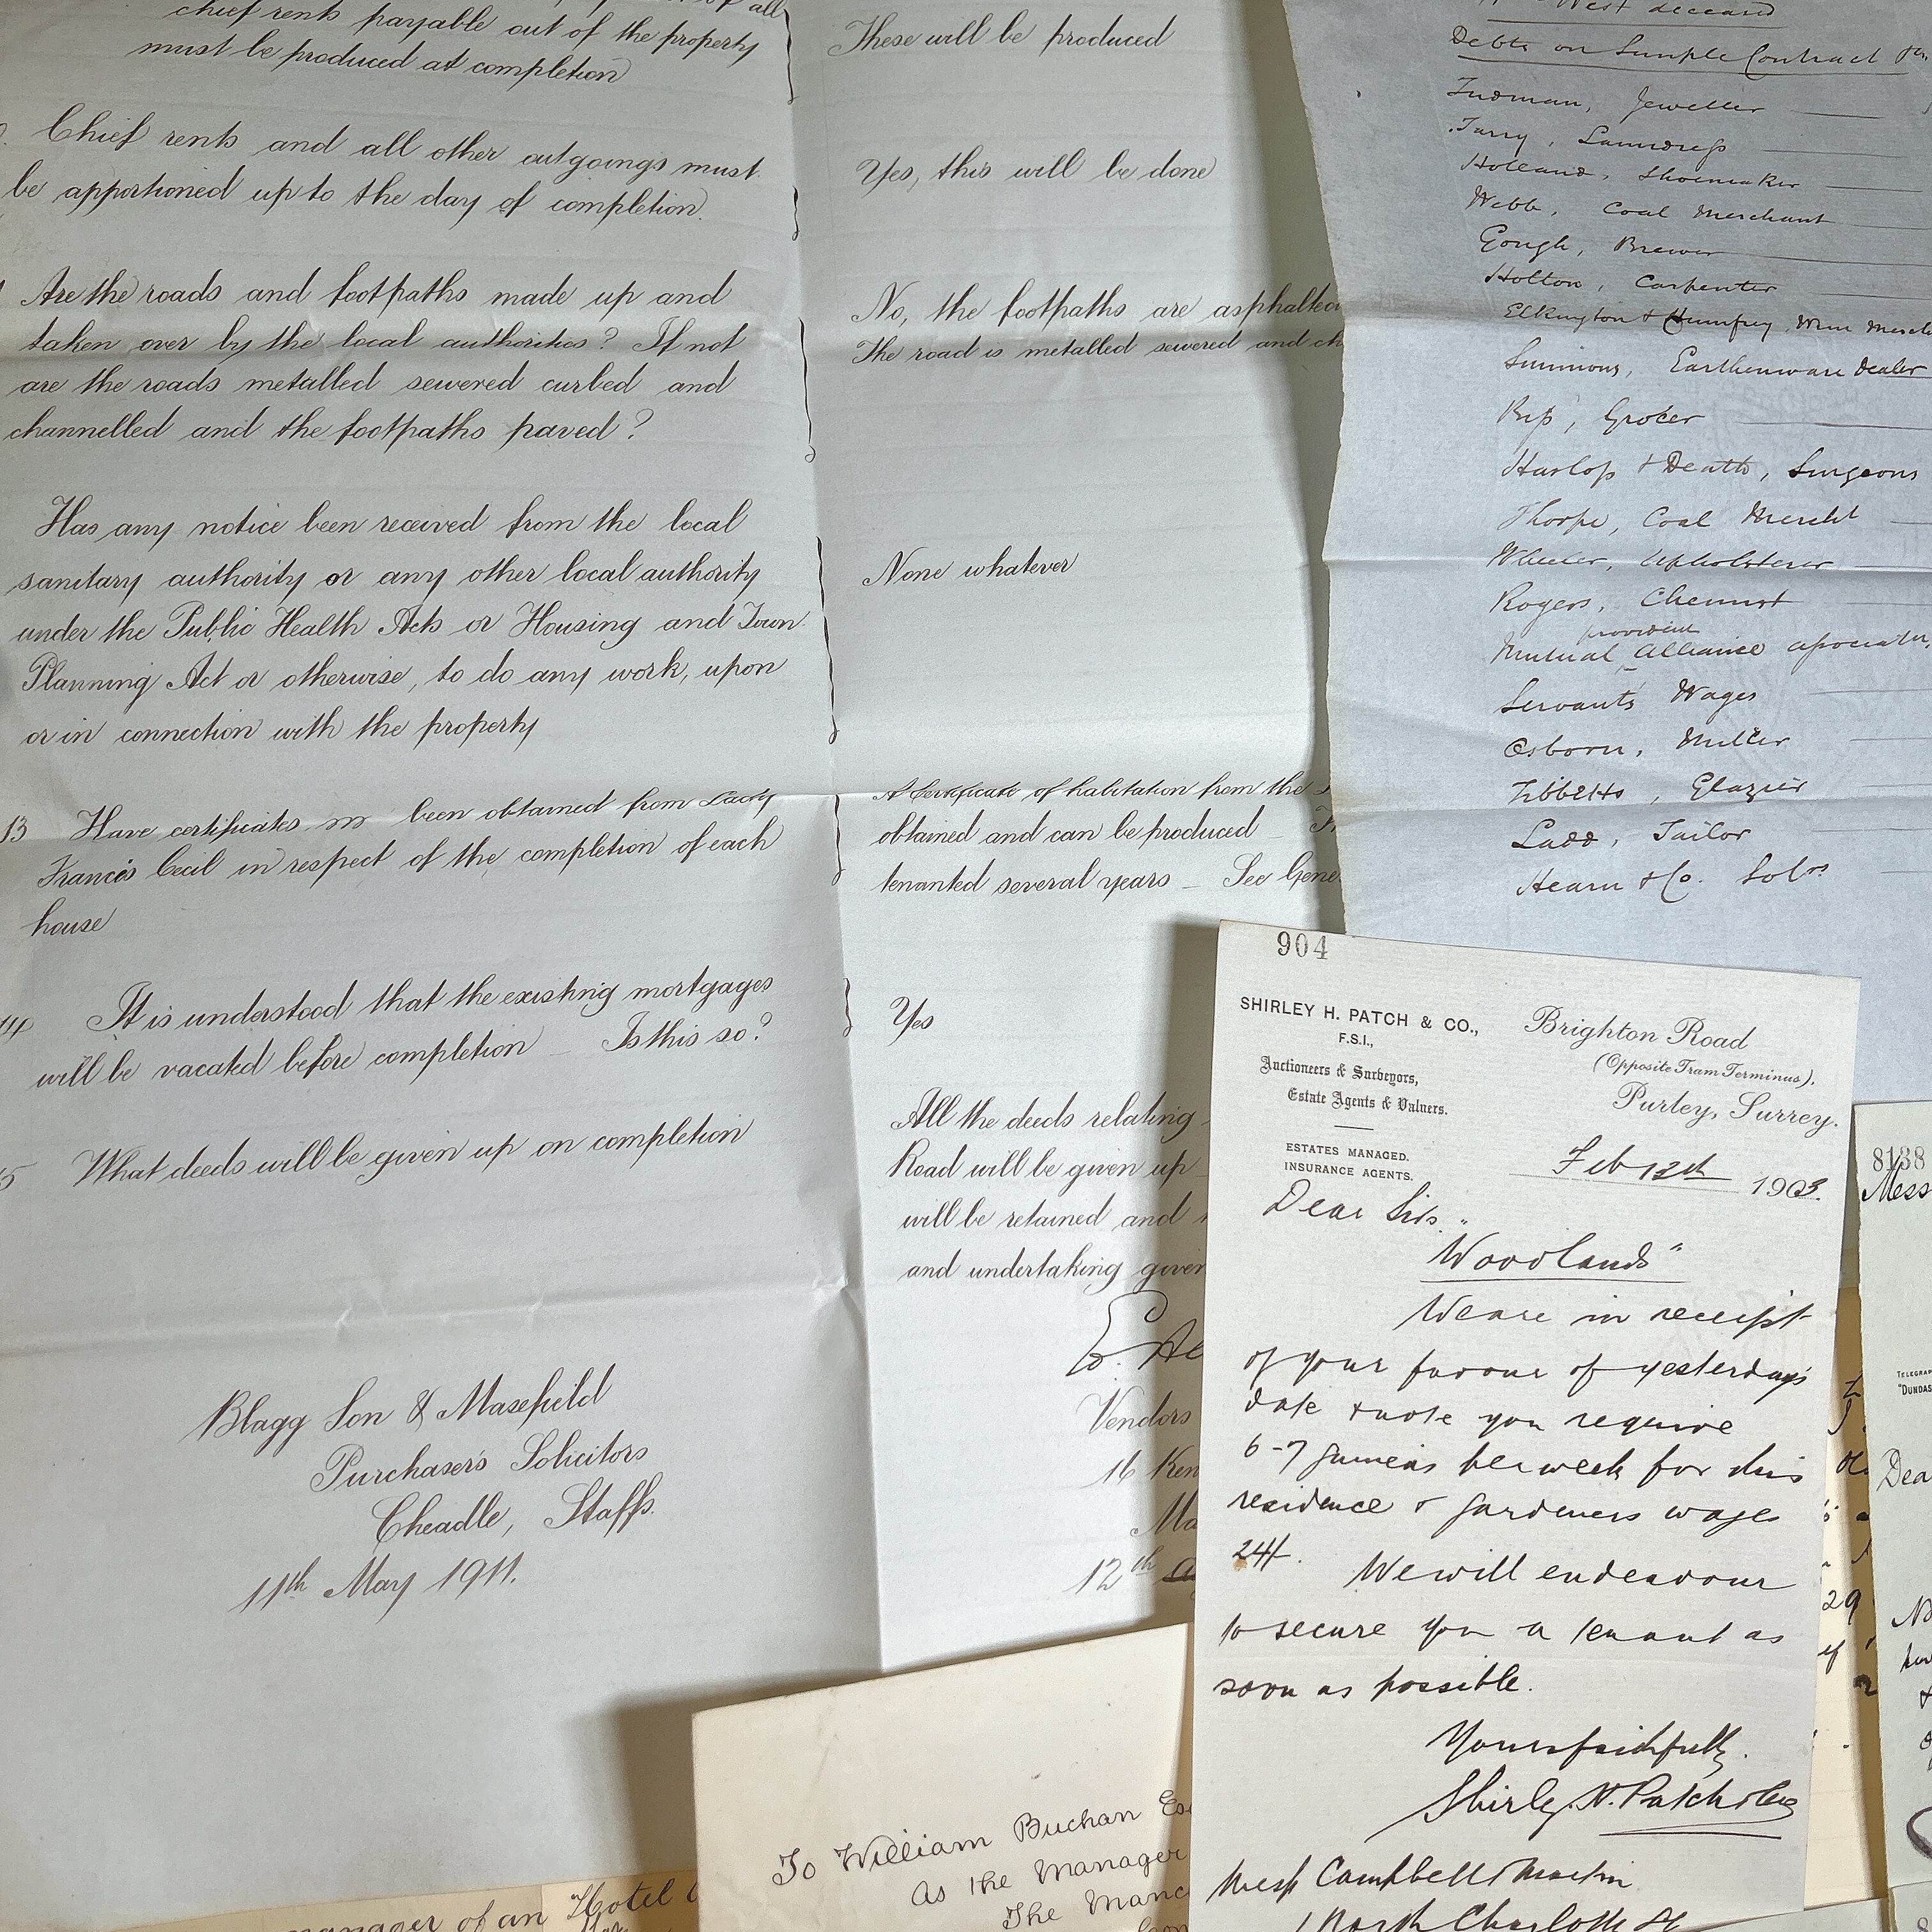 chief rents payable out of the property
must be produced at completion
Chief rents and all other outgoings must
be apportioned up to the day of completion.
Are the roads and footpaths made up and
taken over by the local authorities? If not
are the roads metalled sewered curbed and
channelled and the footpaths paved?
Has any notice been received from the local
sanitary authority or any other local authority
under the Public Health Acts or Housing and Town
Planning Act or otherwise, to do any work, upon
or in connection with the property
13 Have certificates been obtained from Lady
Francis Cecil in respect of the completion of each
house
14 It is understood that the existing mortgages
will be vacated before completion _ Is this so?
15 What deeds will be given up on completion
Blagg Son & Masefield
Purchaser's Solicitors
Cheadle, Staffs.
11th May 1911.
These will be produced
Yes, this will be done
No, the footpaths are asphalted
The road is metalled sewered and
None whatever
A Certificate of habitation from the
obtained and can be produced _
tenanted several years _ See
Yes
All the deeds relating
Road will be given up
will be retained and
and undertaking given
Vendors
16 Ken
12th
West deceased
Debts on Simple Contract
Tudman, Jeweller
Tarry, Laundress
Holland, Shoemaker
Webb, Coal Merchant
Gough, Brewer
Holton, Carpenter
Elkington & Humfrey, Wine
Simmons, Earthenware Dealer
Grocer
Harlop & Death, Surgeons
Thorpe, Coal Mercht
Wheeler, Upholsterer
Rogers, Chemist
provident
Mutual Alliance
Servants Wages
Osborn, Miller
Tibbetts, Glazier
Ladd, Tailor
Hearn & Co. Solrs
904
SHIRLEY H. PATCH & CO.,
F.S.I.,
Auctioneers & Surveyors,
Estate Agents & Valuers.
ESTATES MANAGED.
INSURANCE AGENTS.
Brighton Road
(Opposite Tram Terminus).
Purley, Surrey.
Feb 12th 1903.
Dear Sirs.
"Woodlands"
We are in receipt
of your favour of yesterdays
date & note you require
6-7 guineas per week for this
residence & gardeners wages
24/-. We will endeavour
to secure you a tenant as
soon as possible.
Yours faithfully.
Shirley H. Patch & Co
Messrs Campbell Martin
1 North Charlotte St
8138
Mess
TELEGRA
"DUNDAS
Dea
29
To William Buchan Es
As the Manager
The Manc
manager of an Hotel